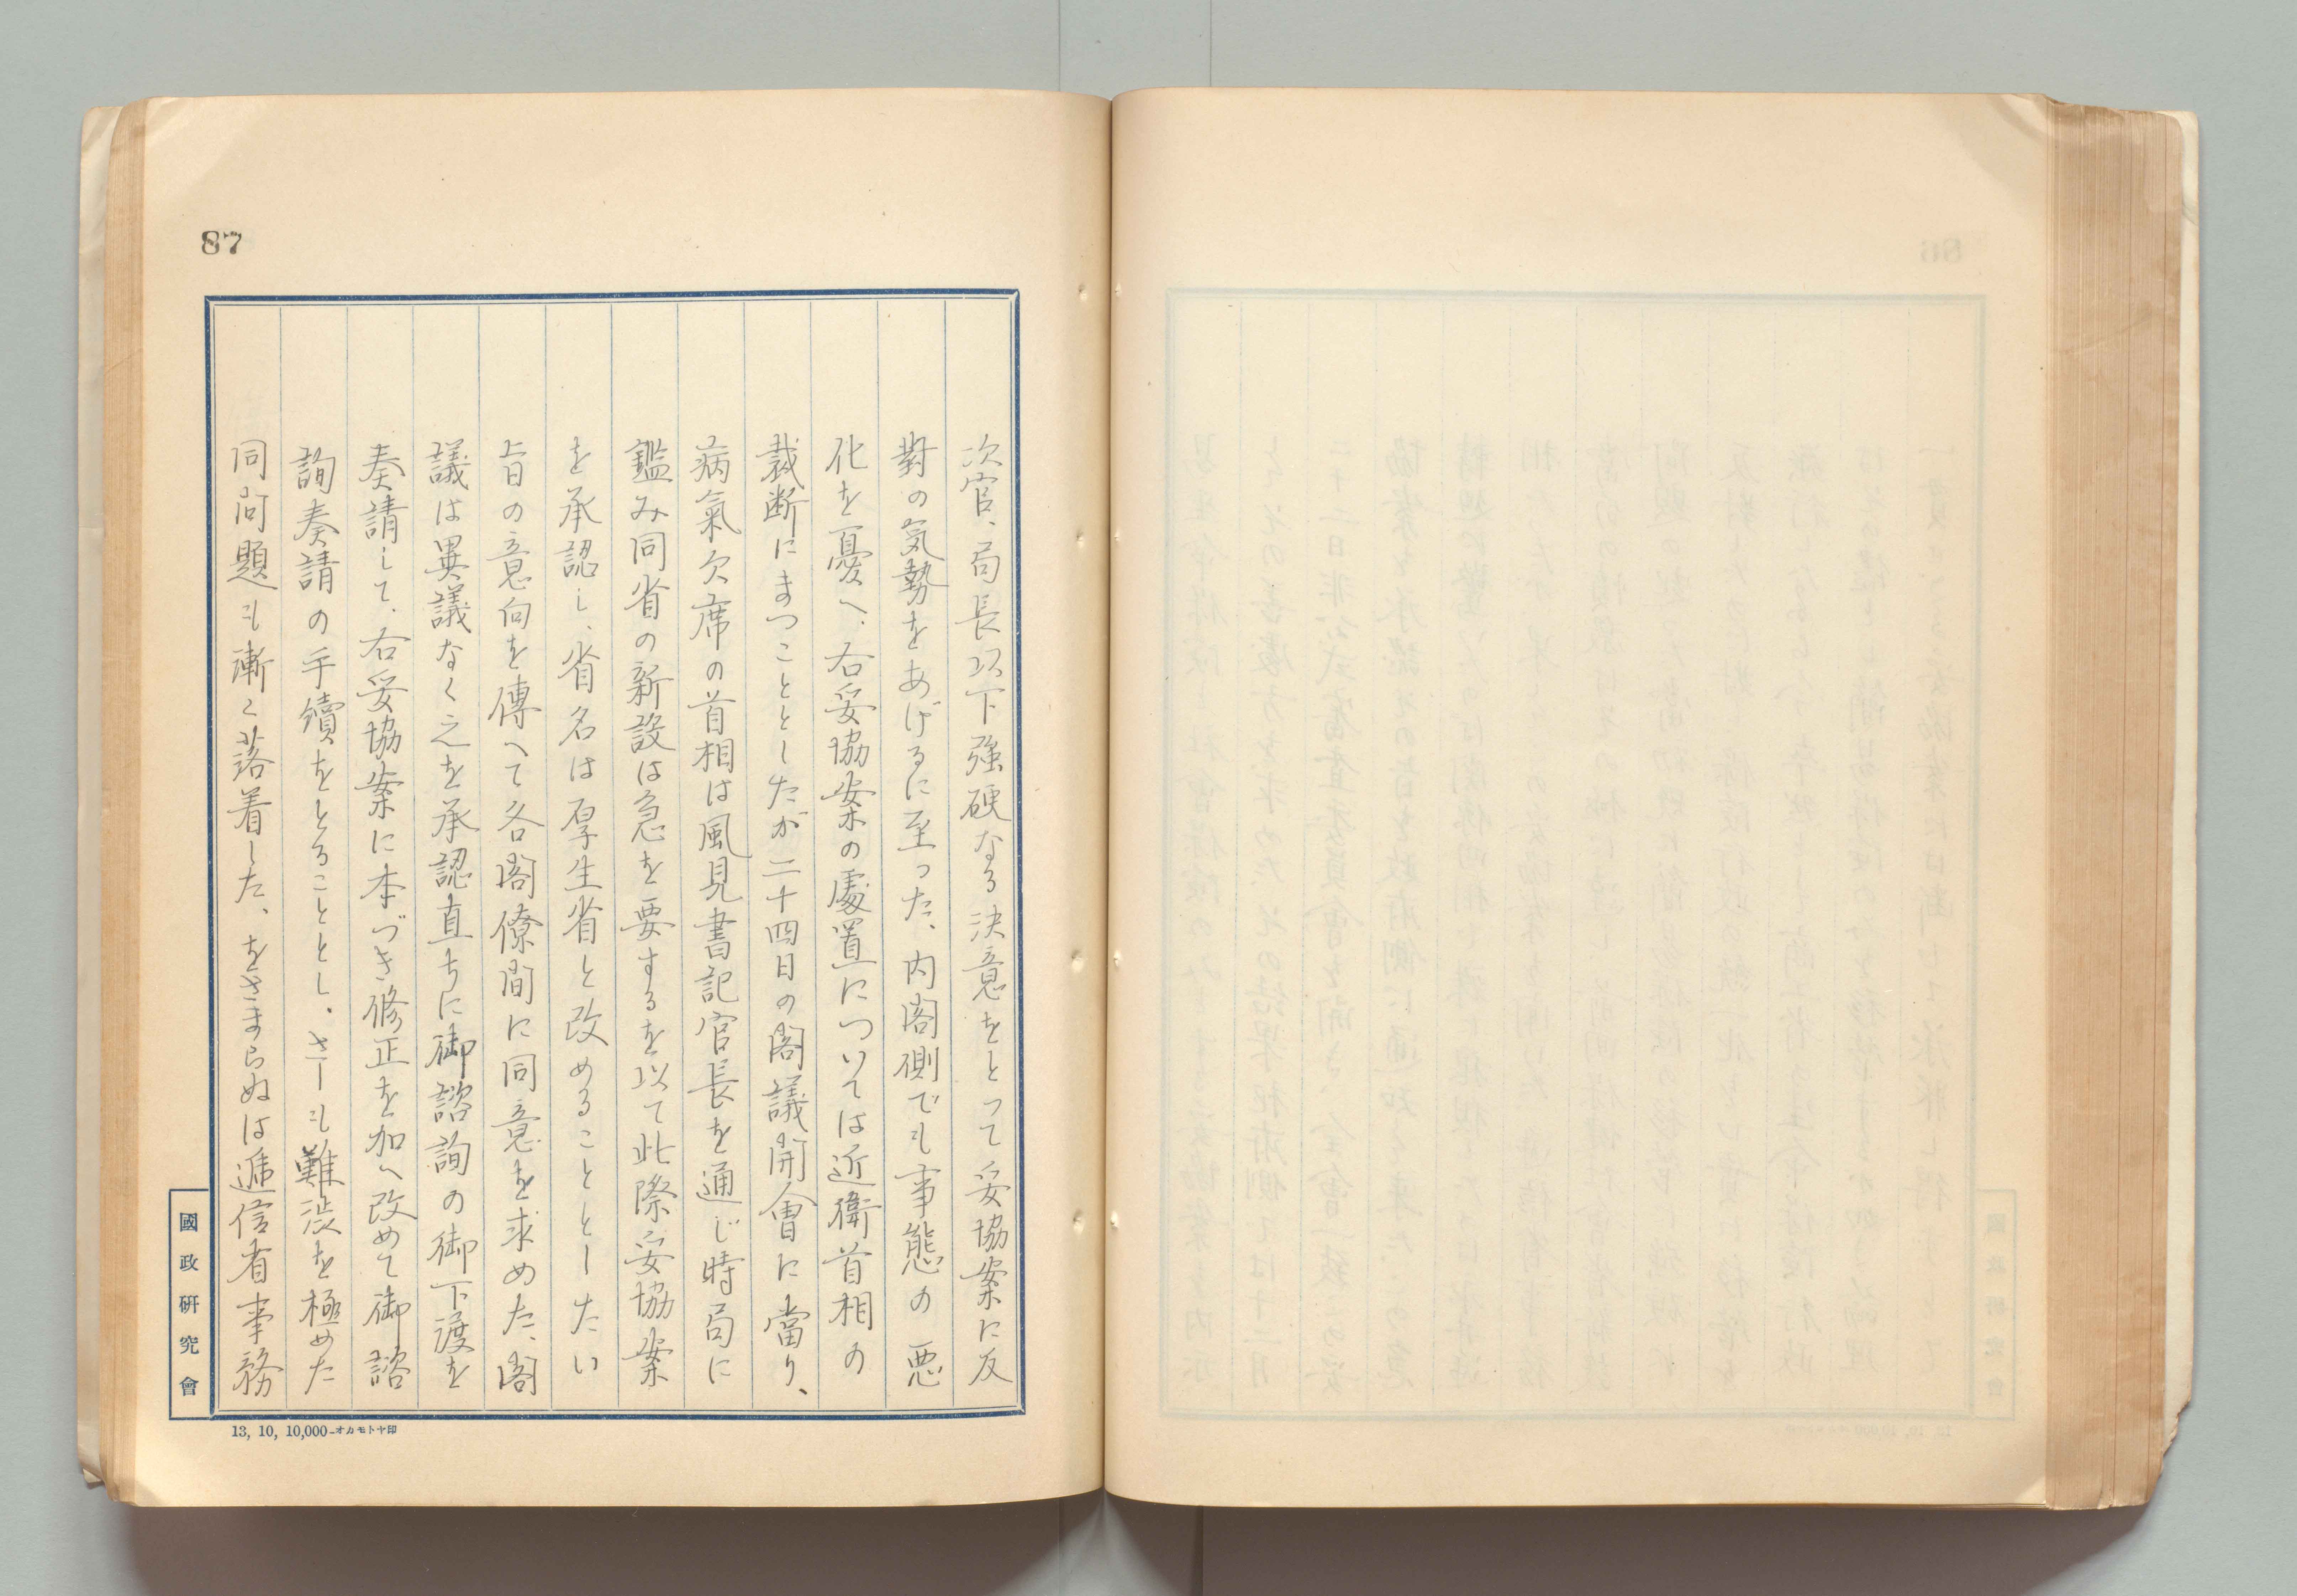 87
次官、局長以下強硬なる決意をとって妥協案に反
對の気勢をあげるに至った、内閣側でも事態の悪
化を憂へ、右妥協案の處置については近衛首相の
裁断にまつこととしたが二十四日の閣議開會に當り、
病氣欠席の首相は風見書記官長を通じ時局に
鑑み同省の新設は急を要するを以て此際妥協案
を承認し、省名は厚生省と改めることとしたい
旨の意向を傳へて各閣僚間に同意を求めた、閣
議は異議なく之を承認直ちに御諮詢の御下渡を
奏請して、右妥協案に本づき修正を加へ改めて御諮
詢奏請の手續をとることとし、さしも難渋を極めた
同問題も漸く落着した、をさまらぬは逓信省事務
國政研究會
13, 10, 10,000—オカモトヤ印